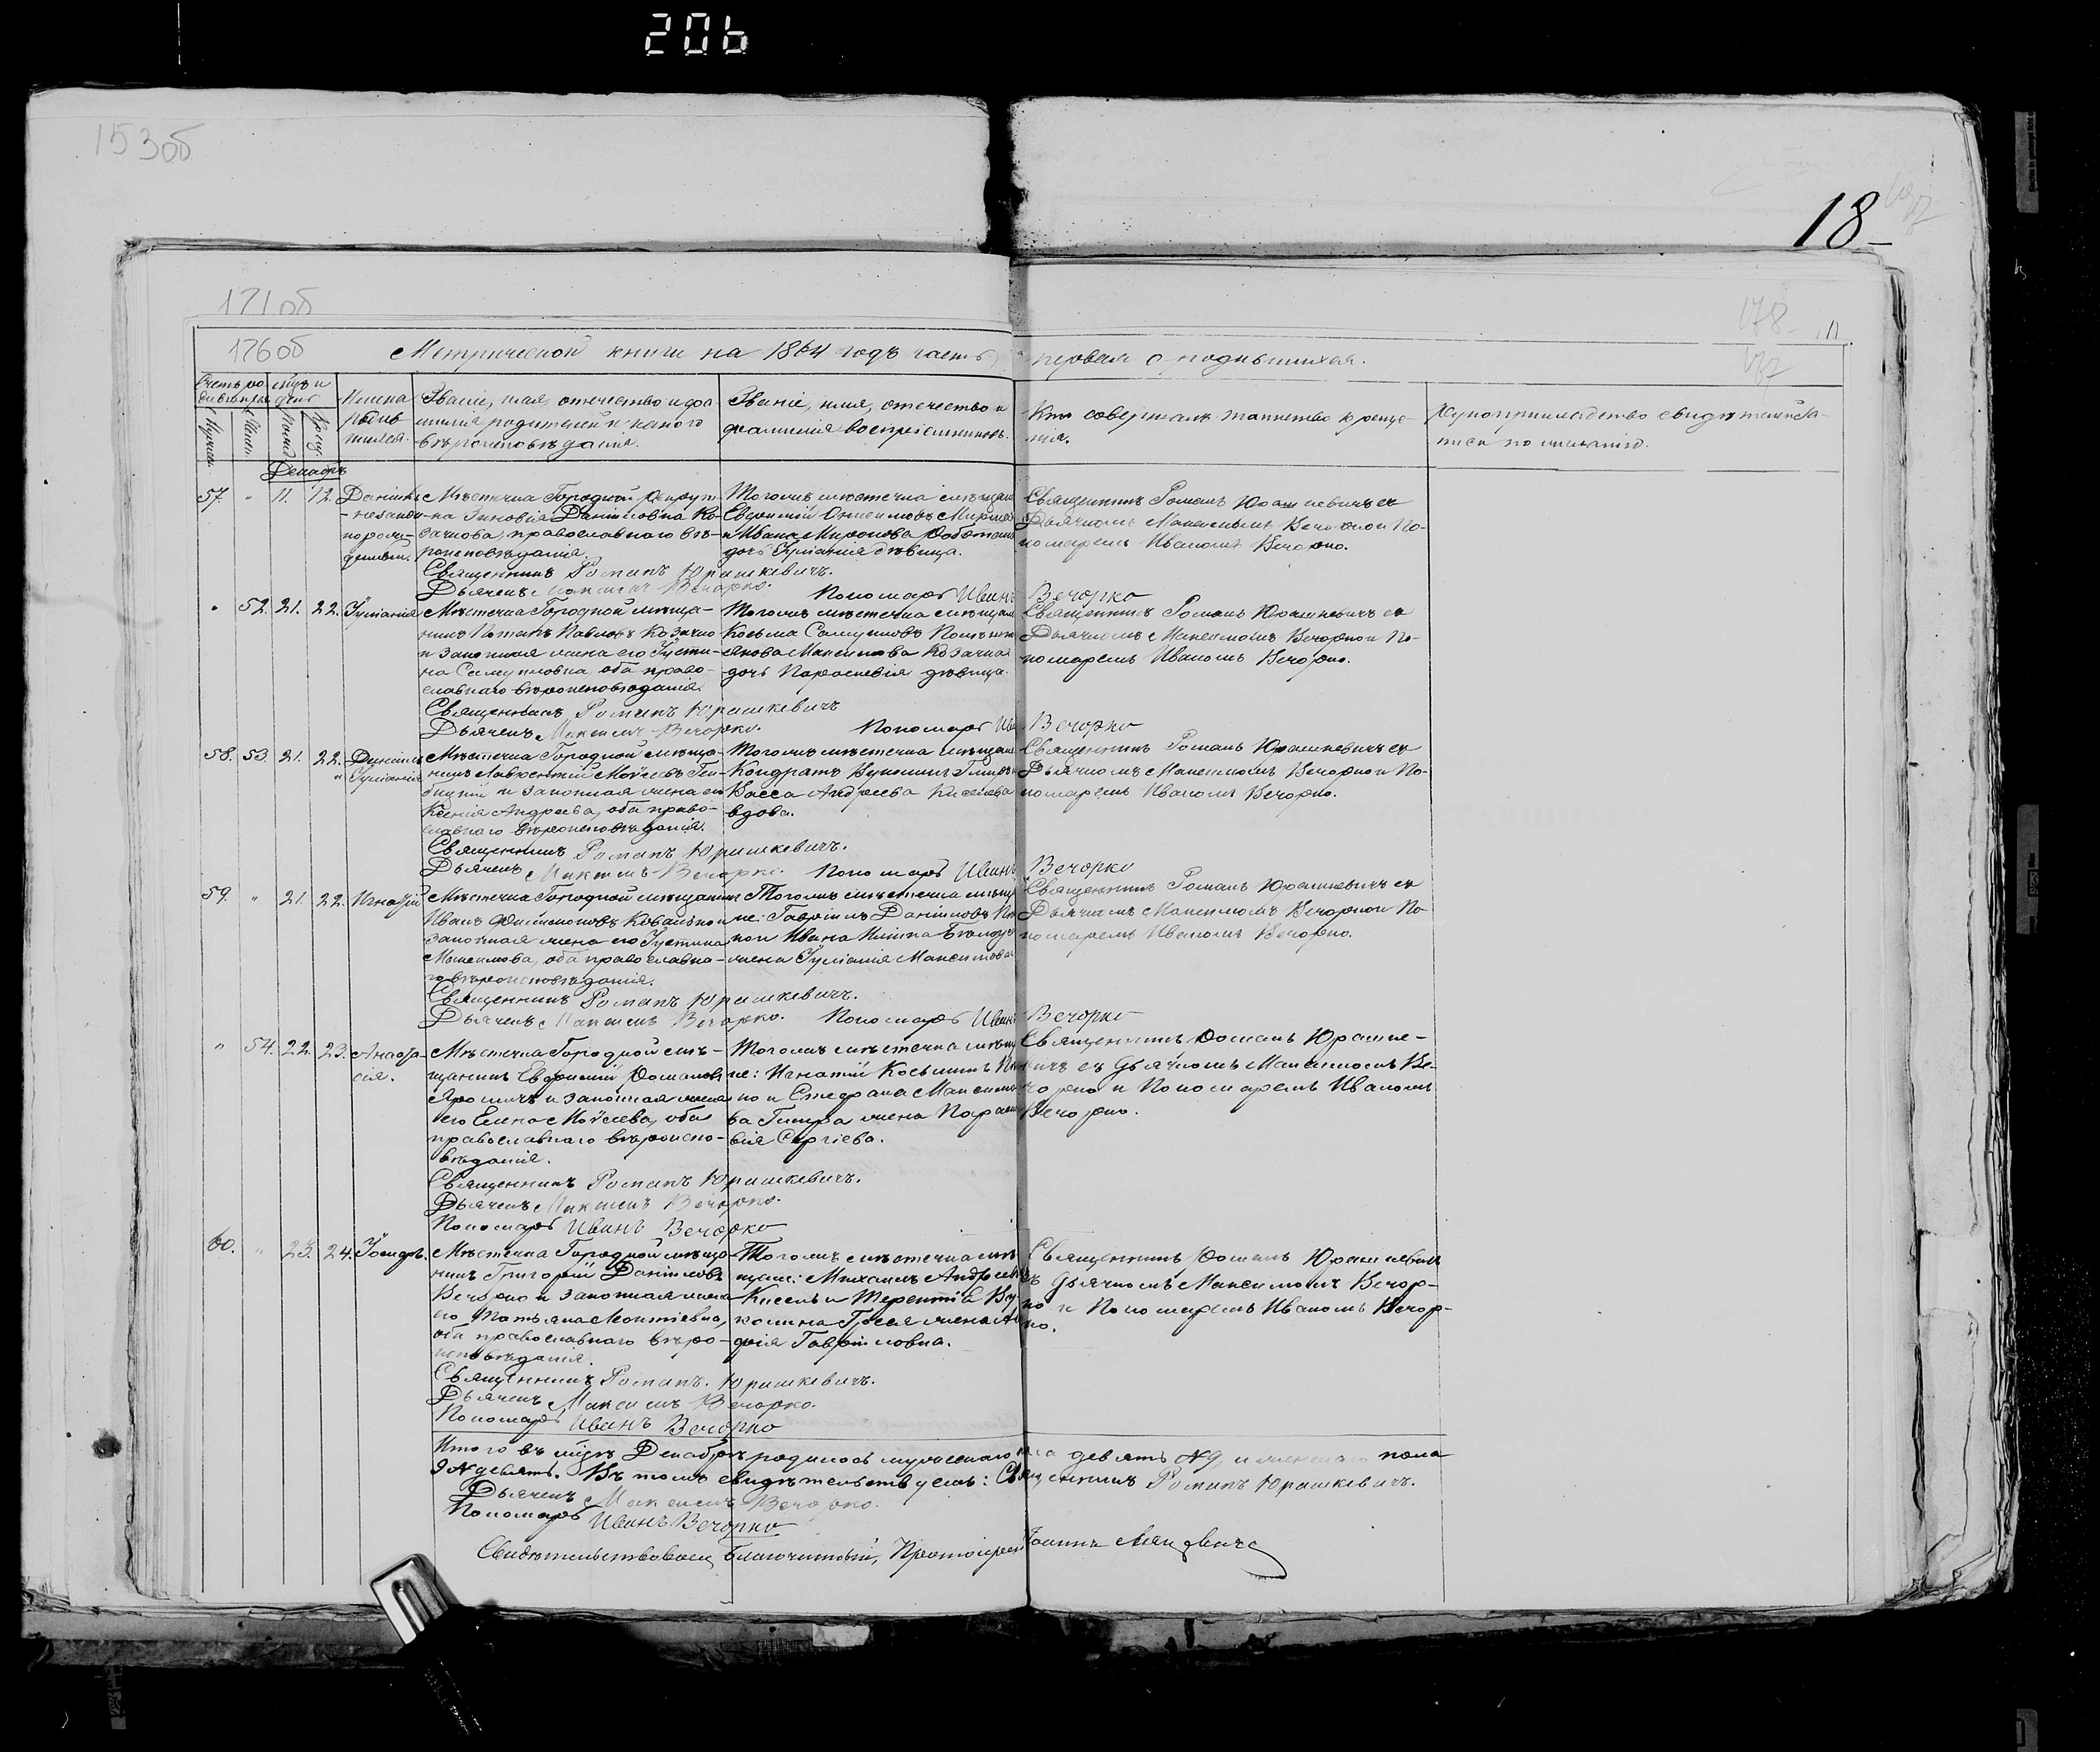 206
153об
18
171об
178
176об
Метрической книги на 1864 годъ часть первая о родившихся.
Счетъ родившихся
Мѣсяцъ и день
Имена родившихся.
Званіе, имя, отчество и фамилія родителей и какого вѣроисповѣданія.
Званіе, имя, отчество и фамилія воспріемниковъ.
Кто совершалъ таинство крещенія.
Рукоприкладство свидѣтелей записи по желанію.
Декабрь
57. " 11. 12. Даніилъ
незаконнорожденный.
Мѣстечка Городной рекрутка
Зиновія Даніиловна Козачкова, православнаго вѣроисповѣданія.
Тогожъ мѣстечка мѣщан
Евфимій Онисимовъ
и Ивана Миронова
дочь Іуліанія дѣвица.
Священникъ Романъ Юрашкевичъ съ
Дьячкомъ Максимомъ Вечорко и Пономаремъ Иваномъ Вечорко.
Священникъ Романъ Юрашкевичъ.
Дьячекъ Максимъ Вечорко. Пономарь Иванъ Вечорко
" 52. 21. 22. Іуліанія
Мѣстечка Городной мѣщанинъ
Потапъ Павловъ Козачко
и законная жена его Іустина
Самуиловна, оба православнаго вѣроисповѣданія.
Тогожъ мѣстечка мѣщан
Косьма Самуиловъ
Якова Максимова Козачка
дочь Параскевія дѣвица.
Священникъ Романъ Юрашкевичъ съ
Дьячкомъ Максимомъ Вечорко и Пономаремъ Иваномъ Вечорко.
Священникъ Романъ Юрашкевичъ
Дьячекъ Максимъ Вечорко. Пономарь Иванъ Вечорко
58. 53. 21. 22. Даніилъ
и Іуліанія
Мѣстечка Городной мѣщанинъ
Лаврентій Моѵсеевъ
и законная жена его
Ксенія Андреева, оба православнаго вѣроисповѣданія.
Тогожъ мѣстечка мѣщан
Кондратъ
Васса Андреева Киселева
вдова.
Священникъ Романъ Юрашкевичъ съ
Дьячкомъ Максимомъ Вечорко и Пономаремъ Иваномъ Вечорко.
Священникъ Романъ Юрашкевичъ.
Дьячекъ Максимъ Вечорко. Пономарь Иванъ Вечорко
59. " 21. 22. Игнатій
Мѣстечка Городной мѣщанинъ
Иванъ Филимоновъ Ковалько и
законная жена его Іустина
Максимова, оба православнаго вѣроисповѣданія.
Тогожъ мѣстечка мѣща
не: Гавріилъ Даніиловъ
Ивана
жена Іуліанія Максимова
Священникъ Романъ Юрашкевичъ съ
Дьячкомъ Максимомъ Вечорко и Пономаремъ Иваномъ Вечорко.
Священникъ Романъ Юрашкевичъ.
Дьячекъ Максимъ Вечорко. Пономарь Иванъ Вечорко
" 54. 22. 23. Анастасія.
Мѣстечка Городной мѣщанинъ
Евфимій Романовъ
Ярошичъ и законная жена
его Елена Моѵсеева, оба
православнаго вѣроисповѣданія.
Тогожъ мѣстечка мѣща
не: Игнатій Косьминъ
и Стефана Максимова
жена Параскевія Сергіева.
Священникъ Романъ Юрашкевичъ
съ Дьячкомъ Максимомъ Вечорко
и Пономаремъ Иваномъ
Вечорко.
Священникъ Романъ Юрашкевичъ.
Дьячекъ Максимъ Вечорко.
Пономарь Иванъ Вечорко
60. " 23. 24. Іосифъ.
Мѣстечка Городной мѣщанинъ
Григорій Даніиловъ
Вечорко и законная жена
его Татьяна Леонтіевна,
оба православнаго вѣроисповѣданія.
Тогожъ мѣстечка мѣ
щане: Михаилъ Андреевъ
Кисель и Терентія
жена
Гавріиловна.
Священникъ Романъ Юрашкевичъ
съ Дьячкомъ Максимомъ Вечорко
и Пономаремъ Иваномъ Вечорко.
Священникъ Романъ Юрашкевичъ.
Дьячекъ Максимъ Вечорко.
Пономарь Иванъ Вечорко
Итого въ м-цѣ Декабрѣ родилось мужескаго пола девять №9, и женскаго пола
9 № девять. Въ томъ свидѣтельствуемъ: Священникъ Романъ Юрашкевичъ.
Дьячекъ Максимъ Вечорко.
Пономарь Иванъ Вечорко
Свидѣтельствовалъ Благочинный, Протоіерей Іоаннъ